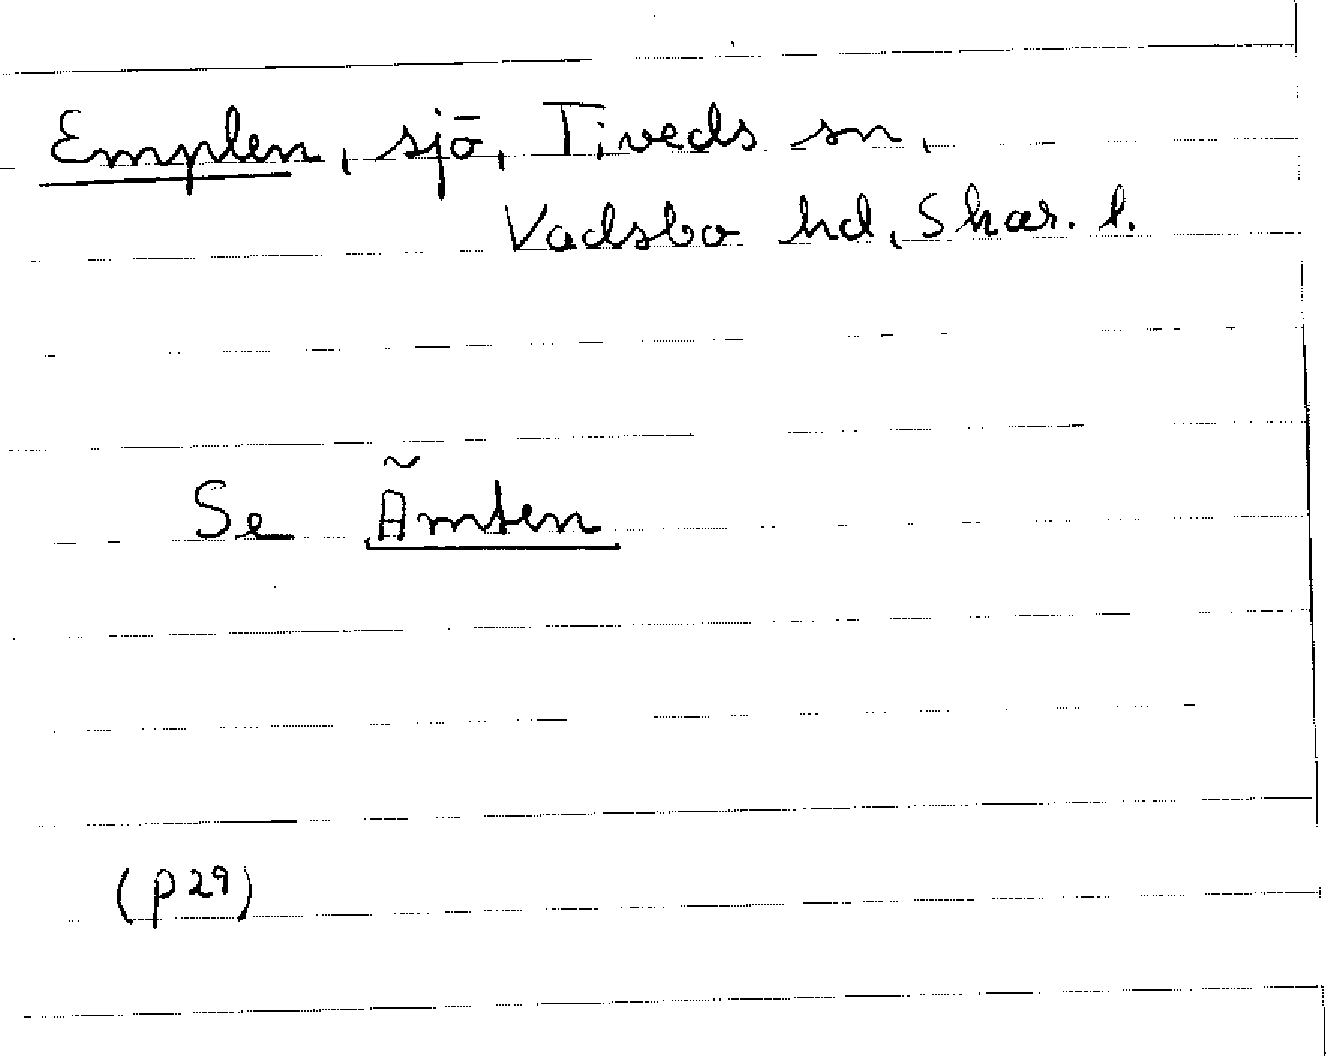 Emplen, sjö, Tiveds sn,
Vadsbo hd, Skar. l.
Se Ämten
(p 29)